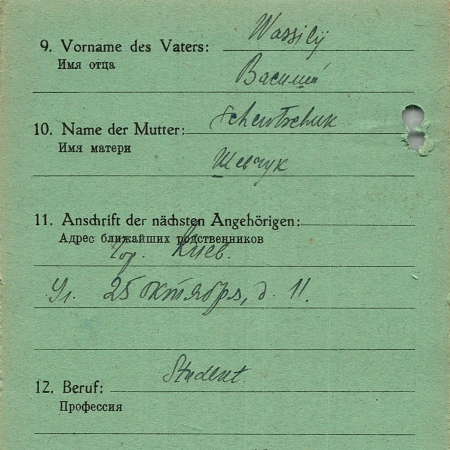 Wassilij
9. Vorname des Vaters:
Имя отца
Василий
Schewtschuk
10. Name der Mutter:
Имя матери
Шевчук
11. Anschrift der nächsten Angehörigen:
Адрес ближайших родственников
Гор. Киев.
Ул. 25 октября, д. 11.
Student
12. Beruf:
Профессия